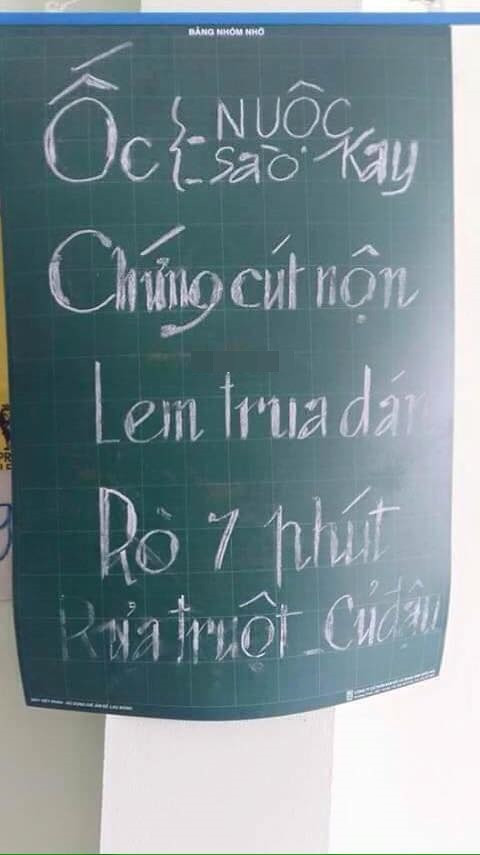 BẢNG NHÓM NHỠ
Ốc { - NUỘC
- Sào Kay
Chứng cút nộn
Lem trua dán
Rò 7 phút
Rửa truột - Củ đậu